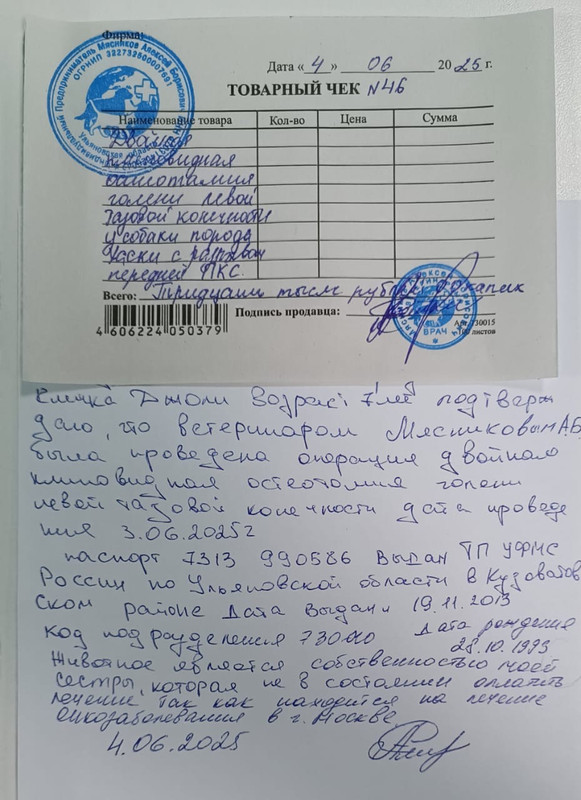 Фирма:
Индивидуальный Предприниматель Мясников Алексей Борисович
Дата « 4 » 06 2025 г.
ТОВАРНЫЙ ЧЕК №46
Наименование товара Кол-во Цена Сумма
Двойная
клиновидная
остеотамия
голени левой
тазовой конечности
у собаки порода
Хаски с разрывом
передней ПКС.
Всего: Тридцать тысяч рублей 00 копеек
Подпись продавца:
4 606224 050379
ВРАЧ
100 листов
кличка Джоли Возраст 7 лет подтверж
даю, что ветеринаром Мясниковым АБ
была проведена операция двойная
клиновидная остеотомия голени
левой тазовой конечности дата проведе
ния 3.06.2025г
паспорт 7313 990586 Выдан ТП УФМС
России по Ульяновской области в Кузоватов
ском районе Дата Выдачи 19.11.2013
код подразделения 730010 Дата рождения
28.10.1993
Животное является собственностью моей
сестры, которая не в состоянии оплатить
лечение так как находится на лечение
онкозаболевания в г. Москве
4.06.2025